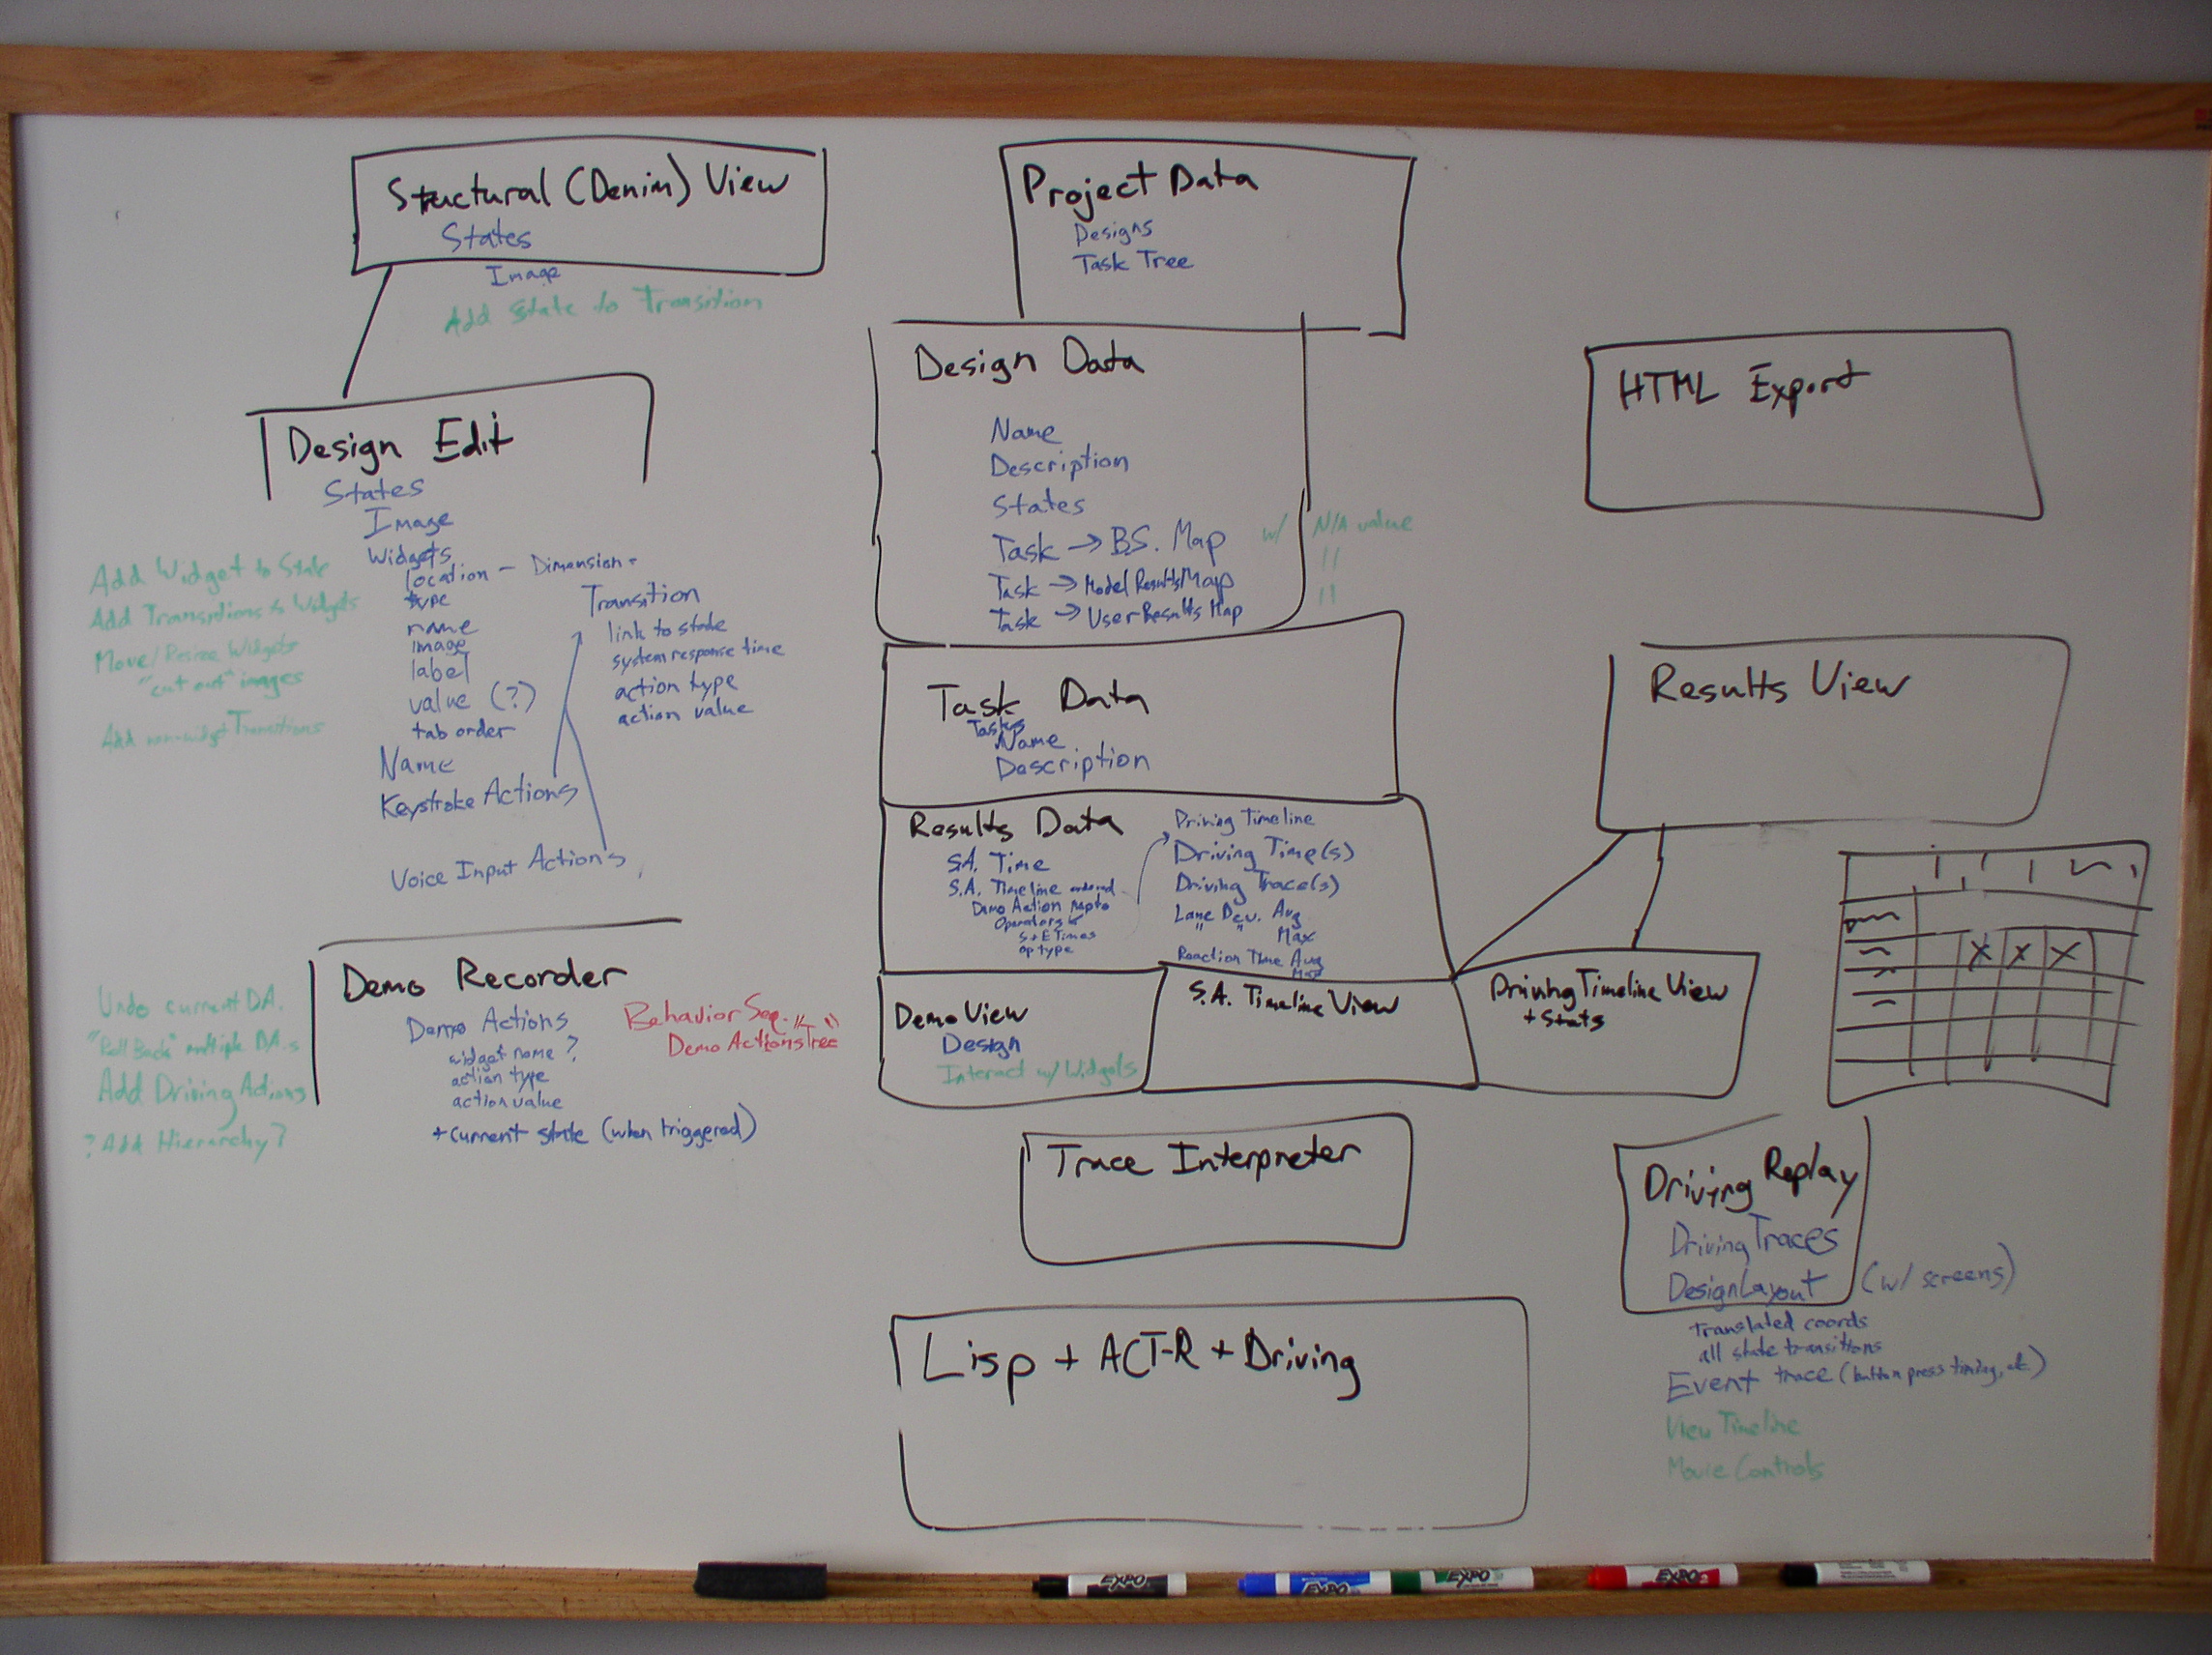 Structural (Denim) View
States
Image
Add State to Transition
Design Edit
States
Image
Widgets
location - Dimension -
type
name
image
label
value (?)
tab order
Name
Keystroke Actions
Voice Input Actions
Transition
link to state
system response time
action type
action value
Add Widget to State
Add Transitions to Widgets
Move/Resize Widgets
"cut out" images
Add non-widget Transitions
Demo Recorder
Demo Actions
widget name ?
action type
action value
+ current state (when triggered)
Behavior Seq.
Demo Actions Tree
Undo current DA.
"Roll Back" multiple DA.s
Add Driving Actions
? Add Hierarchy ?
Project Data
Designs
Task Tree
Design Data
Name
Description
States
Task → B.S. Map w/ N/A value
Task → Model Results Map "
Task → User Results Map "
Task Data
Tasks
Name
Description
Results Data
S.A. Time
S.A. Timeline ordered
Demo Action map to
Operators
S + E Times
op type
Driving Timeline
Driving Time(s)
Driving Trace(s)
Lane Dev. Avg
" " Max
Reaction Time Avg
Max
Demo View
Design
Interact w/ Widgets
S.A. Timeline View
Driving Timeline View
+ Stats
Trace Interpreter
Lisp + ACT-R + Driving
HTML Export
Results View
X X X
Driving Replay
Driving Traces
Design Layout (w/ screens)
translated coords
all state transitions
Event trace (button press timing, etc)
View Timeline
Movie Controls
EXPO
EXPO
EXPO
EXPO